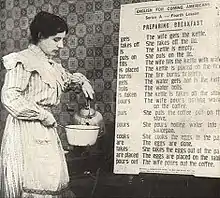 ENGLISH FOR COMING AMERICANS
Series A — Fourth Lesson
PREPARING BREAKFAST
gets The wife gets the kettle.
takes off She takes off the lid.
is The kettle is empty.
puts on She puts on the lid.
fills The wife fills the kettle with water
is placed The kettle is placed on the fire
burns The fire burns brightly.
The water gets hot in the kettle
boils The water boils.
is taken The kettle is taken off the
pours The wife pours boiling water
on the coffee.
puts She puts the coffee pot on the
stove.
pours She pours boiling water into
saucepan.
cooks She cooks the eggs in the
are The eggs are done.
takes She takes the eggs out of the pan
are placed The eggs are placed on the
pours out The wife pours out the coffee.